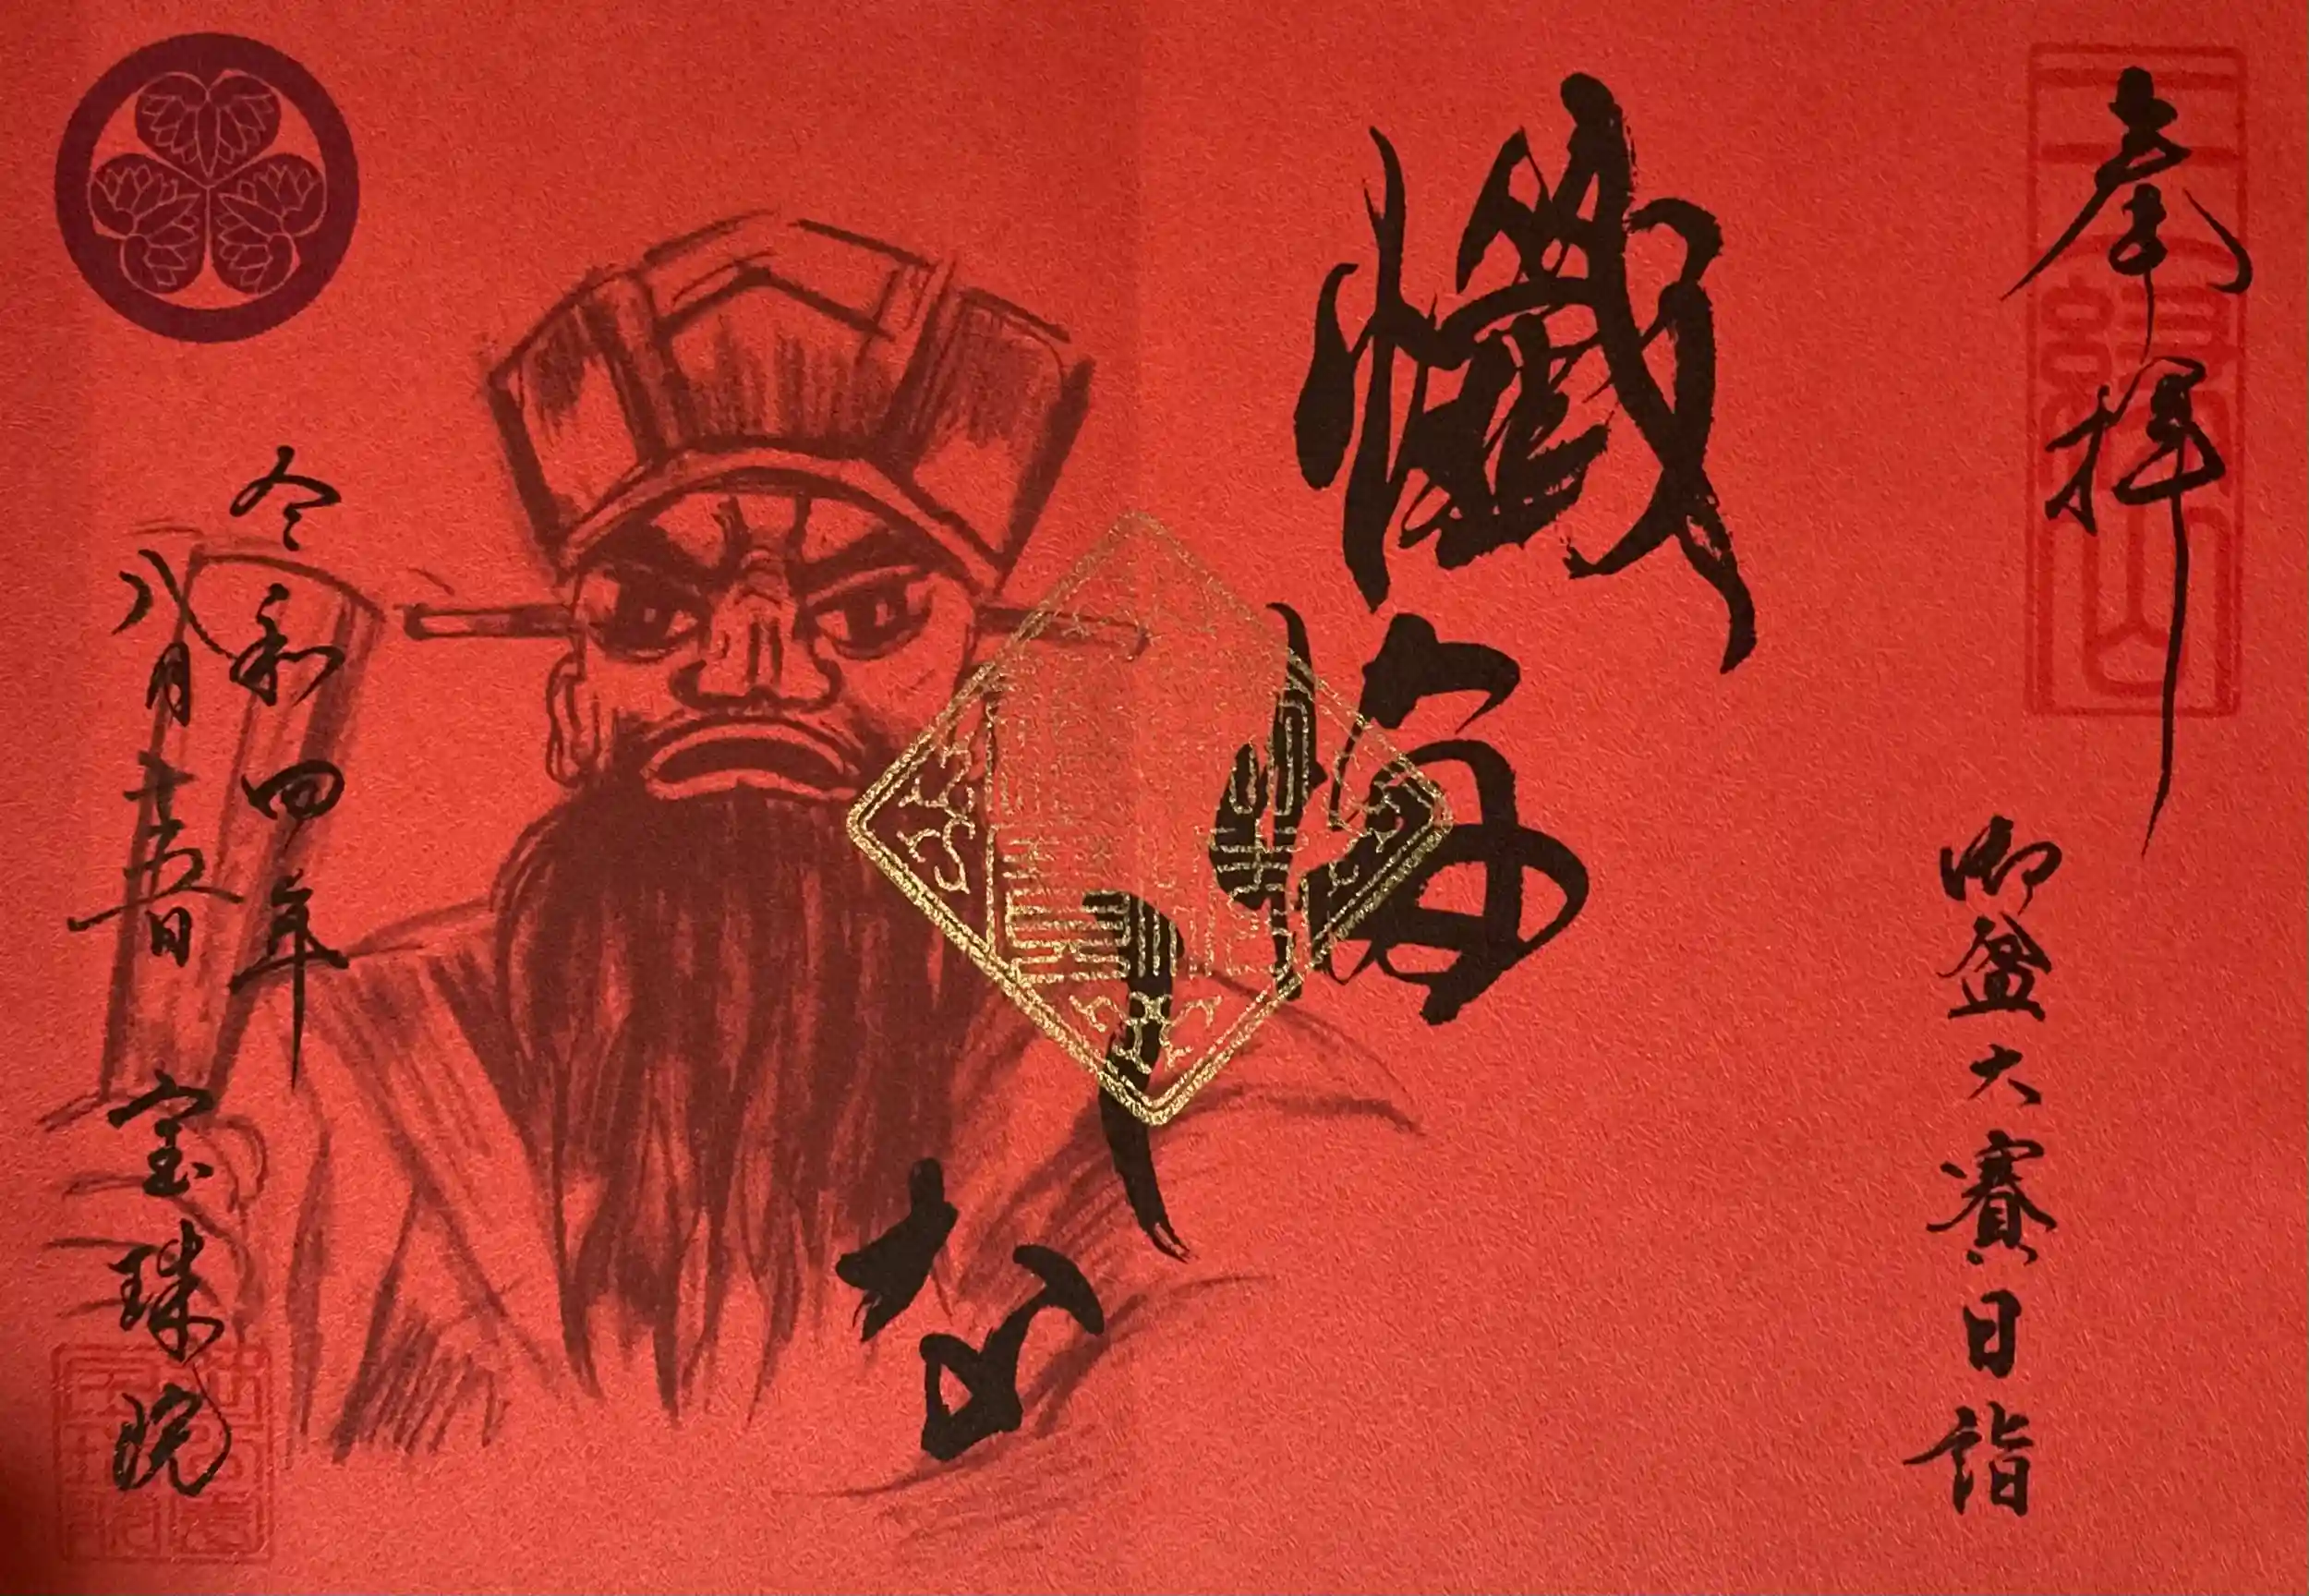 奉拝
三縁山
御盆大賽日詣
懺悔
しな
令和四年
八月十六日
宝珠院